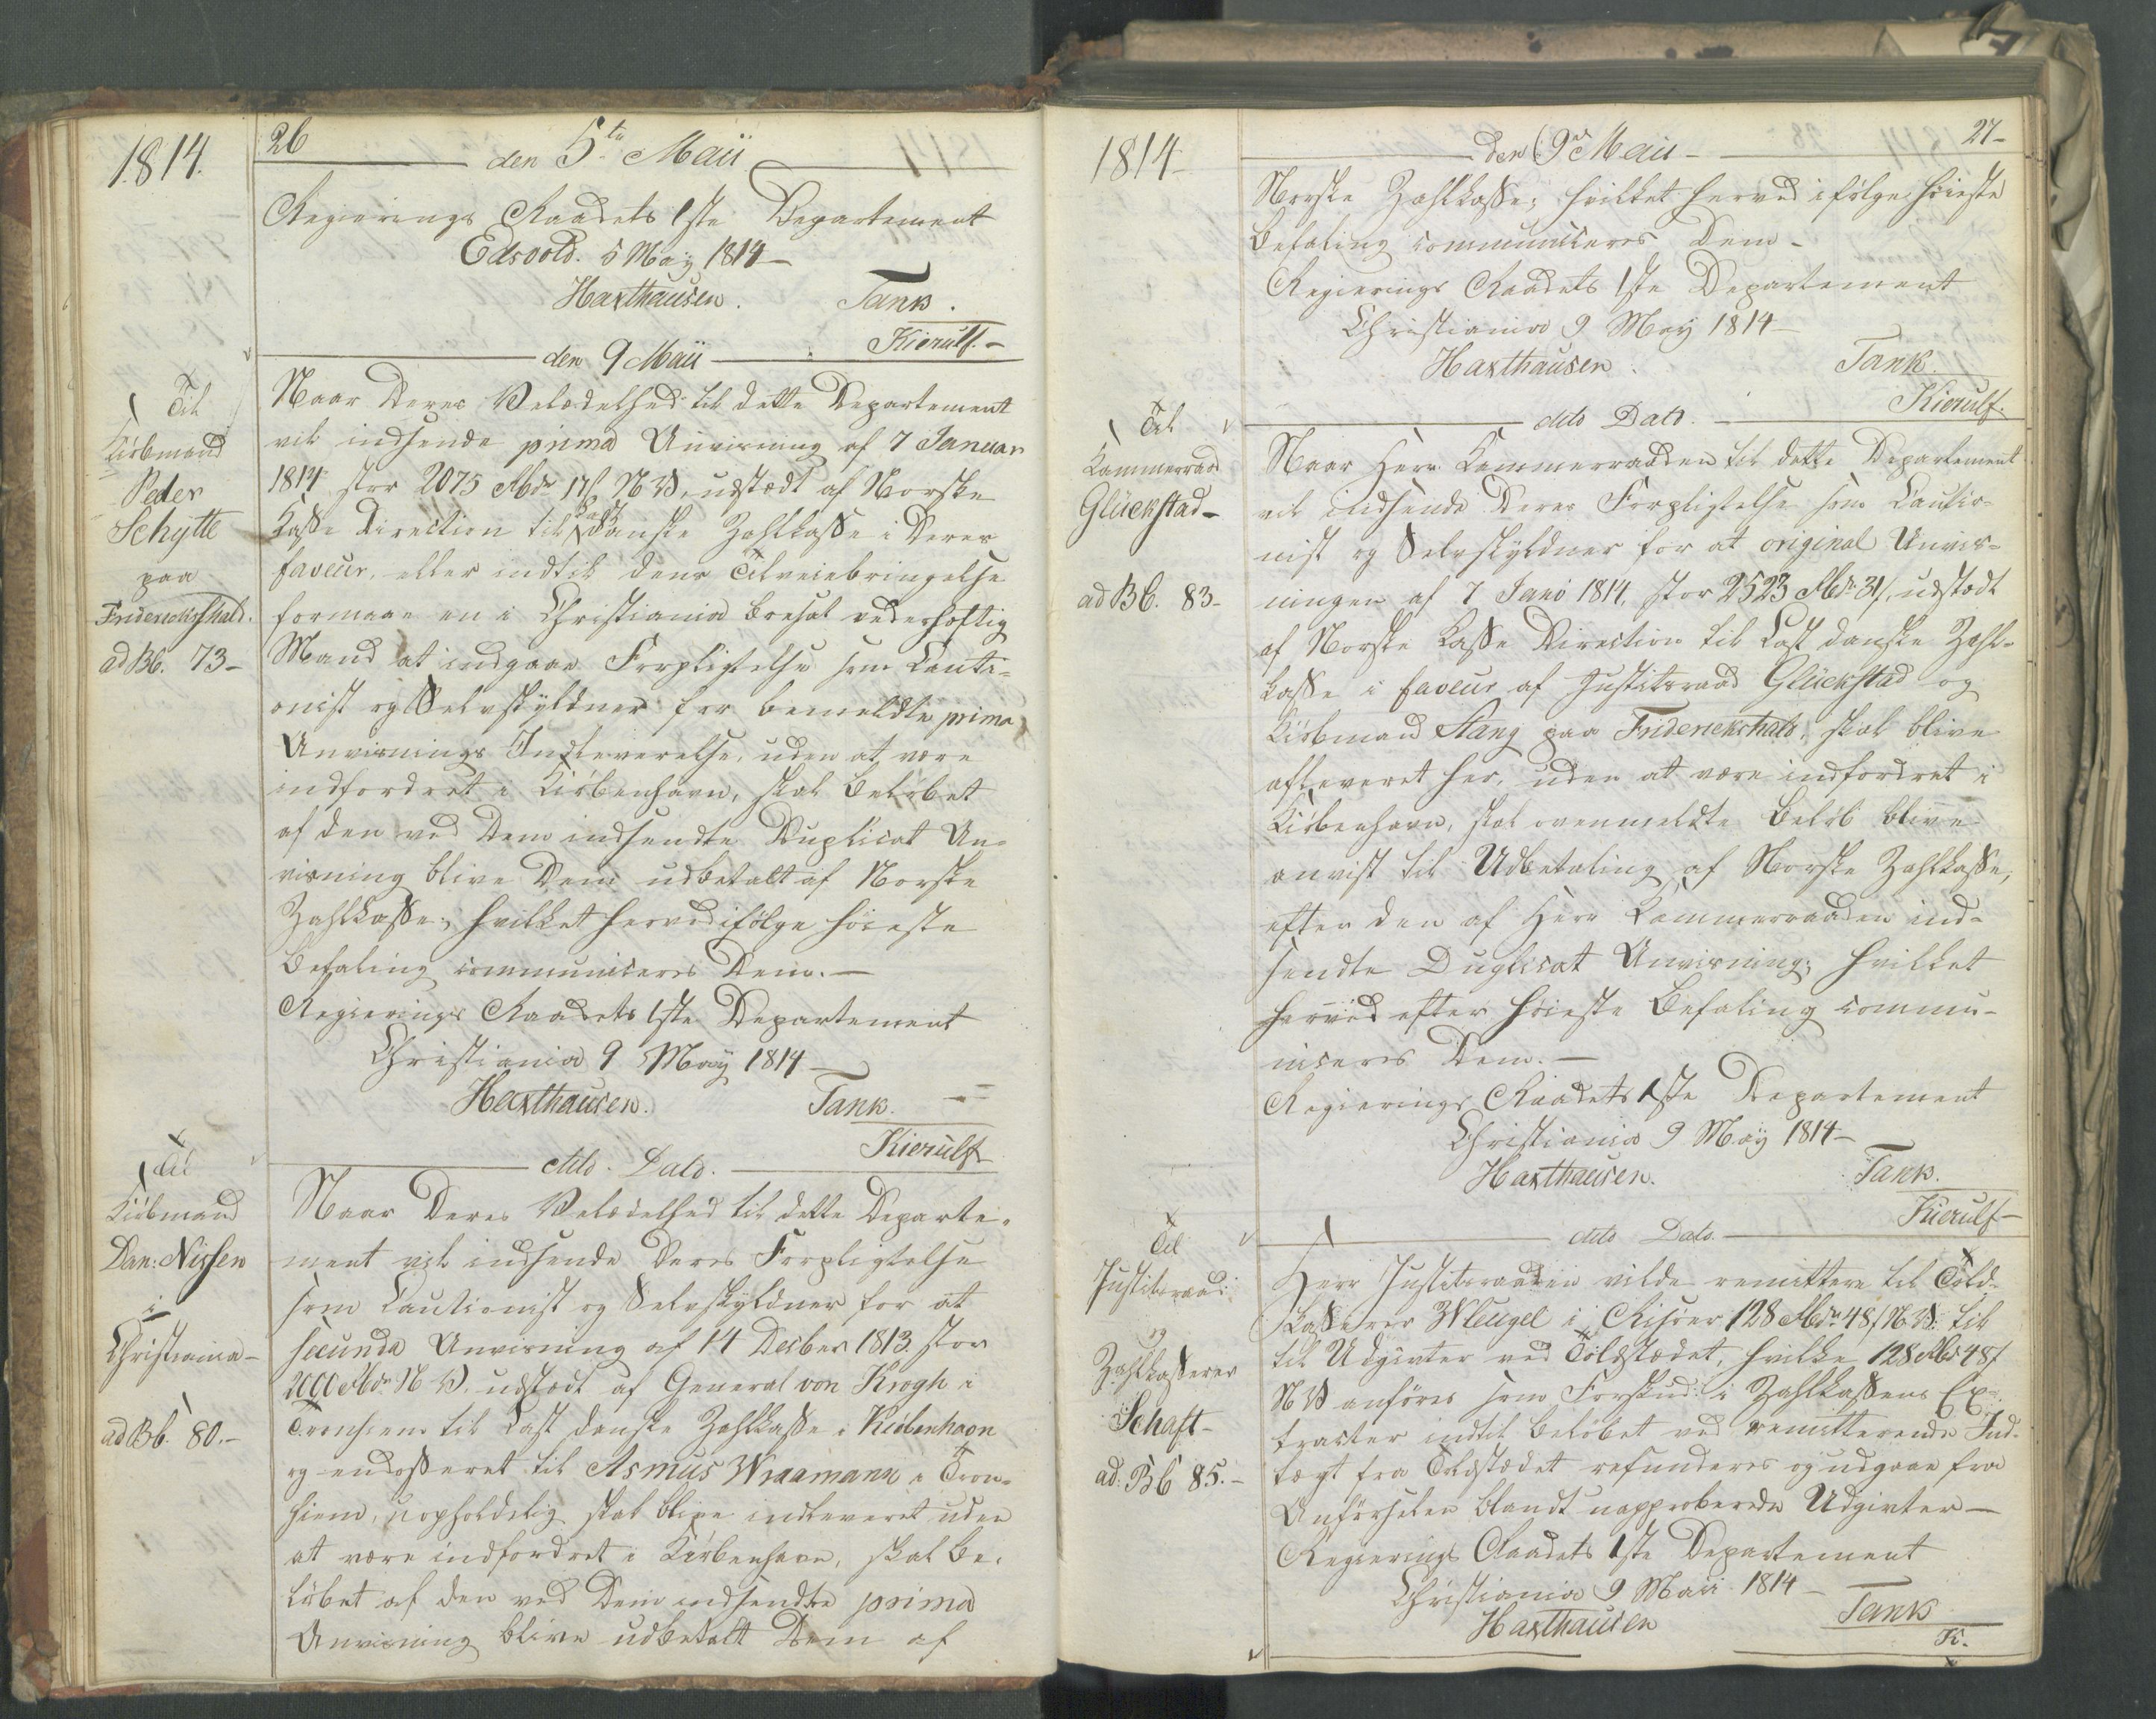 1814.
26
den 5te Maii
Regierings Raadets 1ste Departement
Edsvold. 5 May 1814 —
Haxthausen. Tank.
Kierulf. —
den 9 Maii
Til
Kiöbmand
Peder
Schytte
paa
Friderichshald.
ad B6. 73 —
Naar Deres Velædelhed til dette Departement
vil indsende prima Anvisning af 7 Januar
1814 stor 2075 Rbdr 17 s N. V, udstædt af Norske
Casse Direction til Cast Danske Zahlkasse i Deres
faveur, eller indtil dens Tilveiebringelse
formaae en i Christiania boesat vederhæftig
Mand at indgaae Forpligtelse som Cauti-
onist og Selvskyldner for bemeldte prima
Anvisnings Indleverelse, uden at være
indfordret i Kiöbenhavn, skal Belöbet
af den ved Dem indsendte Duplicat An-
visning blive Dem udbetalt af Norske
Zahlkasse; hvilket herved ifölge höieste
Befaling communiceres Dem. —
Regierings Raadets 1ste Departement
Christiania 9 May 1814 —
Haxthausen. Tank.
Kierulf
dito Dato.
Til
Kiöbmand
Dan: Nissen
i
Christiania —
ad B6. 80. —
Naar Deres Velædelhed til dette Departe-
ment vil indsende Deres Forpligtelse
som Cautionist og Selvskyldner for at
secunda Anvisning af 14 Decber 1813. stor
2000 Rbdr N. V. udstædt af General von Krogh i
Tronhiem til Cast danske Zahlkasse i Kiöbenhavn
og endosseret til Asmus Wraamann i Tron-
hiem, uopholdelig skal blive indleveret uden
at være indfordret i Kiöbenhavn, skal Be-
löbet af den ved Dem indsendte prima
Anvisning blive udbetalt Dem af
1814 —
27 —
den 9de Maii —
Norske Zahlkasse; hvilket herved ifölge höieste
Befaling communiceres Dem —
Regierings Raadets 1ste Departement
Christiania 9 May 1814 —
Haxthausen. Tank.
Kierulf.
dito Dato.
Til
Kammerraad
Glückstad —
ad B6. 83 —
Naar Herr Kammerraaden til dette Departement
vil indsende Deres Forpligtelse som Cautio-
nist og Selvskyldner for at original Anvis-
ningen af 7 Janv 1814, stor 2523 Rbdr 31 s, udstædt
af Norske Casse Direction til Cast danske Zahl-
kasse i faveur af Justitsraad Glückstad og
Kiöbmand Stang paa Friderickshald, skal blive
afleveret her, uden at være indfordret i
Kiöbenhavn, skal ovenmeldte Belöb blive
anvist til Udbetaling af Norske Zahlkasse,
efter den af Herr Kammerraaden ind-
sendte Duplicat Anvisning; hvilket
herved efter höieste Befaling commu-
niceres Dem. —
Regierings Raadets 1ste Departement
Christiania 9 May 1814 —
Haxthausen. Tank.
Kierulf —
dito Dato.
Til
Justitsraad
og
Zahlkasserer
Schaft —
ad. B6 85. —
Herr Justitsraaden vilde remittere til Told-
Casserer Wleugel i Risöer 128 Rbdr 48 s N. V. til
til Udgivter ved Toldstædet, hvilke 128 Rbd 48 s
N V anföres som Forskud i Zahlkassens Ex-
tracter indtil Belöbet ved remitterende Ind-
tægt fra Toldstædet refunderes og udgaae fra
Anförselen blandt uapproberede Udgivter —
Regierings Raadets 1ste Departement
Christiania 9 Maii 1814 —
Haxthausen Tank
K.